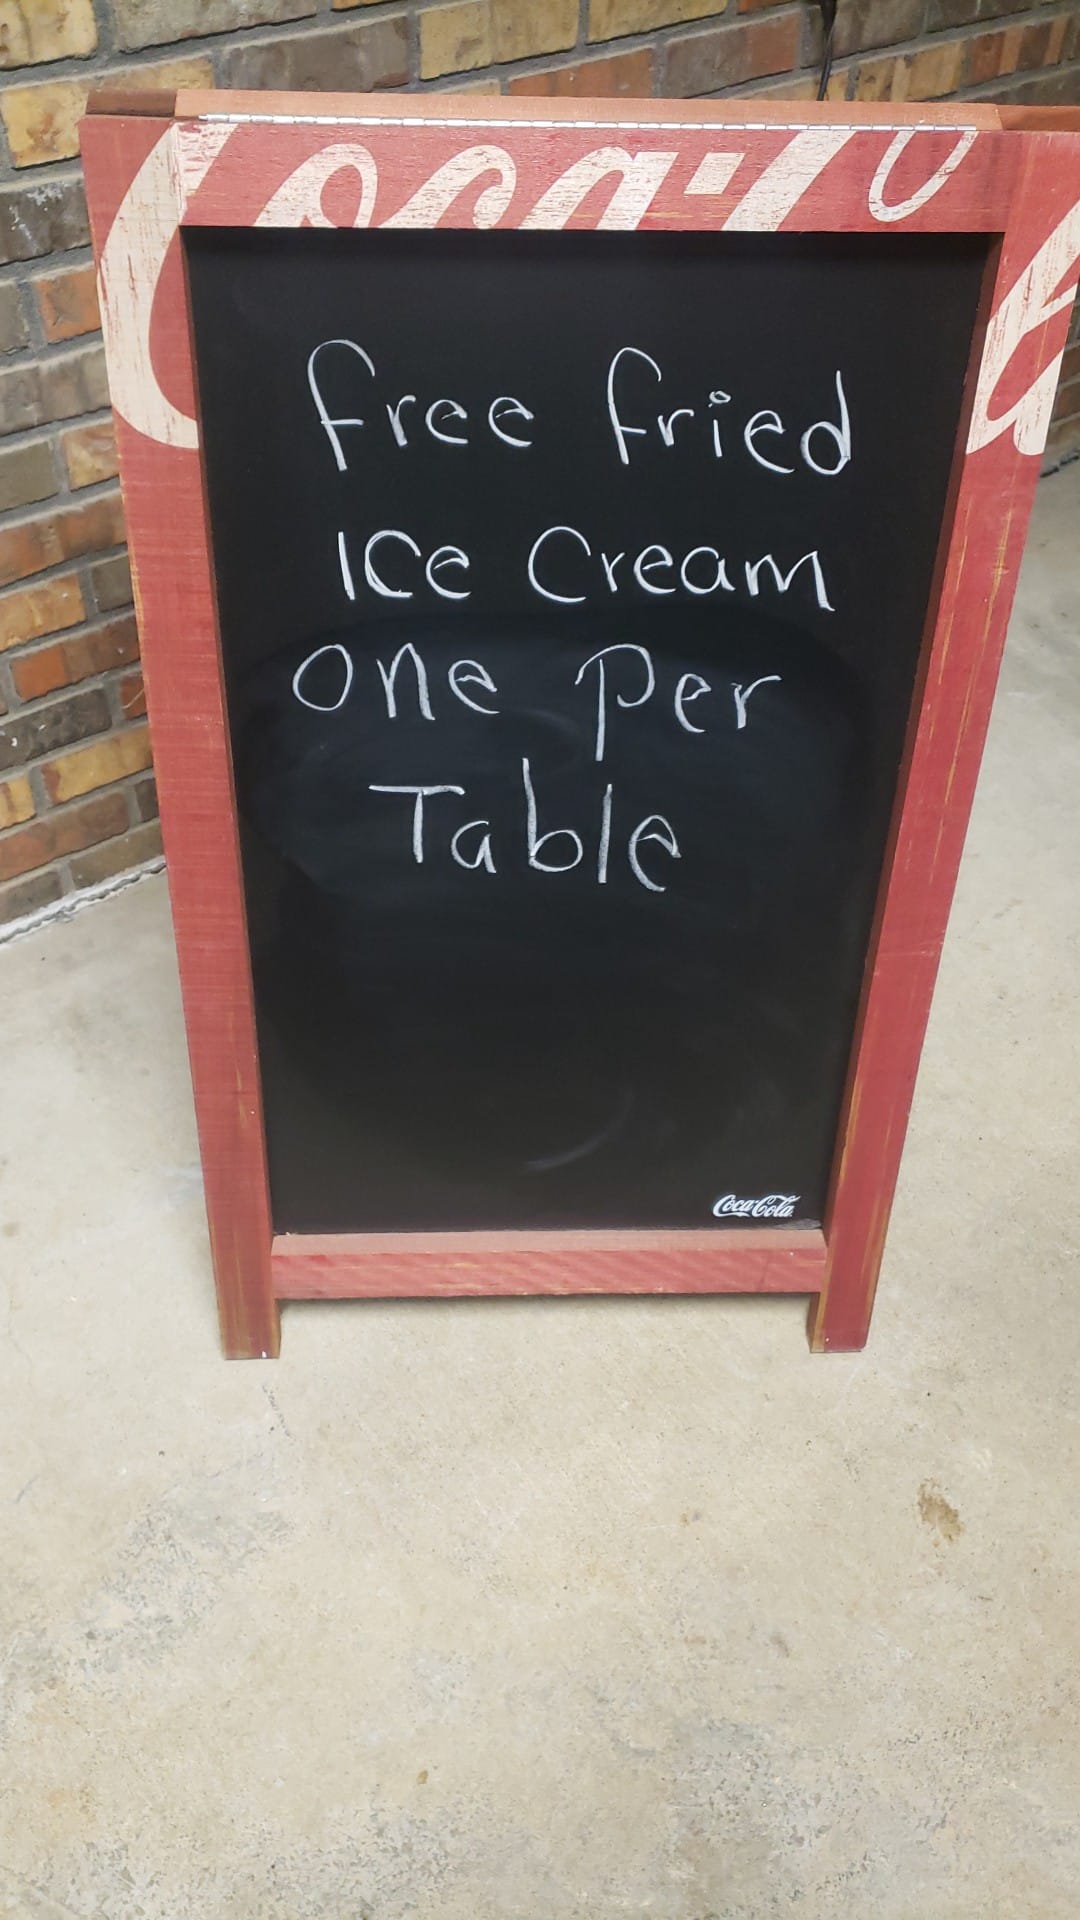 Coca-Cola
free fried
Ice Cream
one Per
Table
Coca-Cola